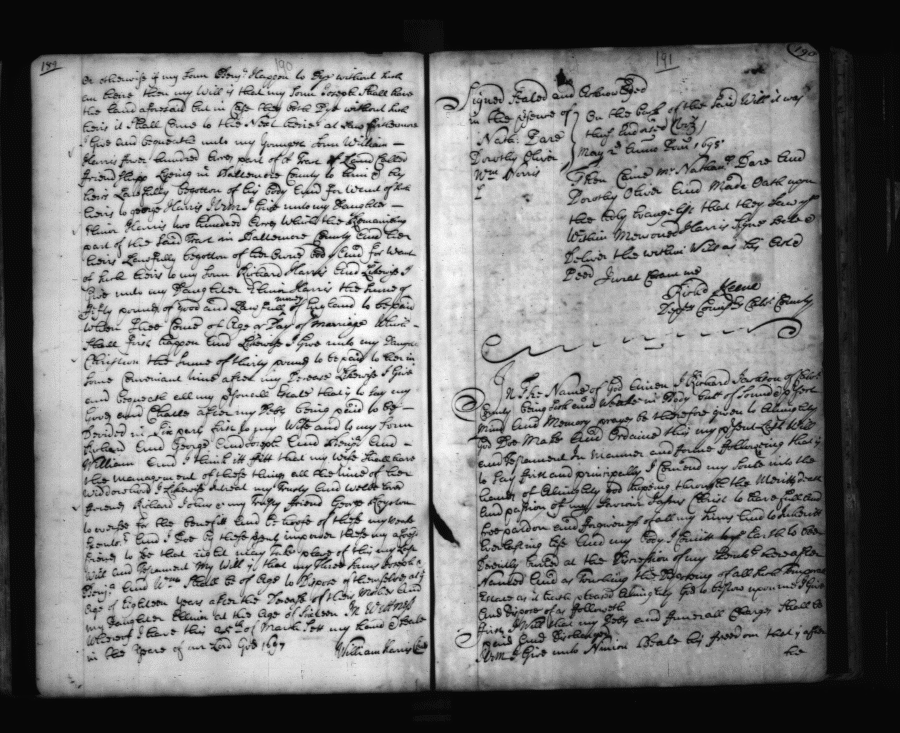 189
190
or otherwise if my Sonn Benj: happen to Dye without such
an heire then my Will is that my Sonn Joseph Shall have
the Land aforesaid but in Case they both Dye without such
heirs it Shall Come to the Next heire at Law
I Give and bequeath unto my Youngest Sonn William
Harris four hundred Acres part of a Tract of Land Called
friends Lying in Baltemore County to him & his
heirs Lawfully begotten of his body and for want of such
heirs to george Harris I Give unto my Daughter
Harris two hundred Acres Which is the Remaining
part of the said Tract in Baltemore County and her
heirs Lawfully begotten of her owne body and for Want
of such heirs to my Sonn Richard Harris and Likewise I
Give unto my Daughter Harris the Summe of
fifty pounds of Good and Lawfull money of England to be paid
When Shee Comes of Age or Day of Marriage Which
Shall first happen and Likewise I Give unto my Daugter
the Summe of thirty pounds to be paid to her in
Some Conveniant time after my Decease Likewise I Give
and bequeath all my psonall Estate that is to say my
Goods and Chattles after my Debts being paid to be
Devided in Six parts first to my Wife and to my Sonn
Richard and George and Joseph and Benj: and
William and I think itt fitt that my Wife Shall have
the Management of these things all the time of her
Widdowhood I Likewise intreat my trusty and welbeloved
friends Richard Johns & my trusty friend George Royston
to oversee for the Benefitt and of these my
and I Doe by these psent impower these my afores:
friends to See that noe Will may take place of this my Last
Will and Testament My Will is that my three Sonns Joseph
Benj: and Wm Shall be of Age to Dispose of themselves at ye
Age of Eighteen years after the Decease of their Mother and
my Daughter at the Age of Sixteen In Witness
Whereof I have this of March Sett my hand & Seale
in the Yeare of our Lord God 1697
William Harris
191
190
Signed Sealed and Acknowledged
in the psence of
Nath: Dare
Dorothy Oliver
Wm Norris
On the back of the said Will it was
thus Endorsed
May 2d Anno Dom 1698
Then Came Mr. Nathanl: Dare and
Dorothy Oliver and Made Oath upon
the holy Evangelists that they saw ye
Within Menconed Harris Signe Seale &
Deliver the within Will as his Act &
Deed Jurat Coram me
Richd Keene
Depty Comisy Calvt County
In The Name of God Amen I Richard Jackson of Calvt
County being sick and Weake in Body but of sound & pfect
mind and Memory prayse be therefore given to Almighty
God Doe Make and Ordaine this my psent Last Will
and Testament in Manner and forme following that is
to say first and principally I Comend my Soule into the
hands of Almighty God hopeing through the Meritts death
and passion of my Saviour Jesus Christ to have full and
free pardon and forgiveness of all my Sinns and to Inheritt
Everlasting life and my Body I Comitt to the Earth to bee
Decently buried at the Discression of my hereafter
Named and as Touching the Disposing of all such Temporal
Estate as it hath pleased Almighty God to bestow upon me I Give
and Dispose of as followeth
first I Will that my Debts and funerall Charges Shall be
paid and Discharged
Item I Give unto Ninion Beale his freedom that is after
he